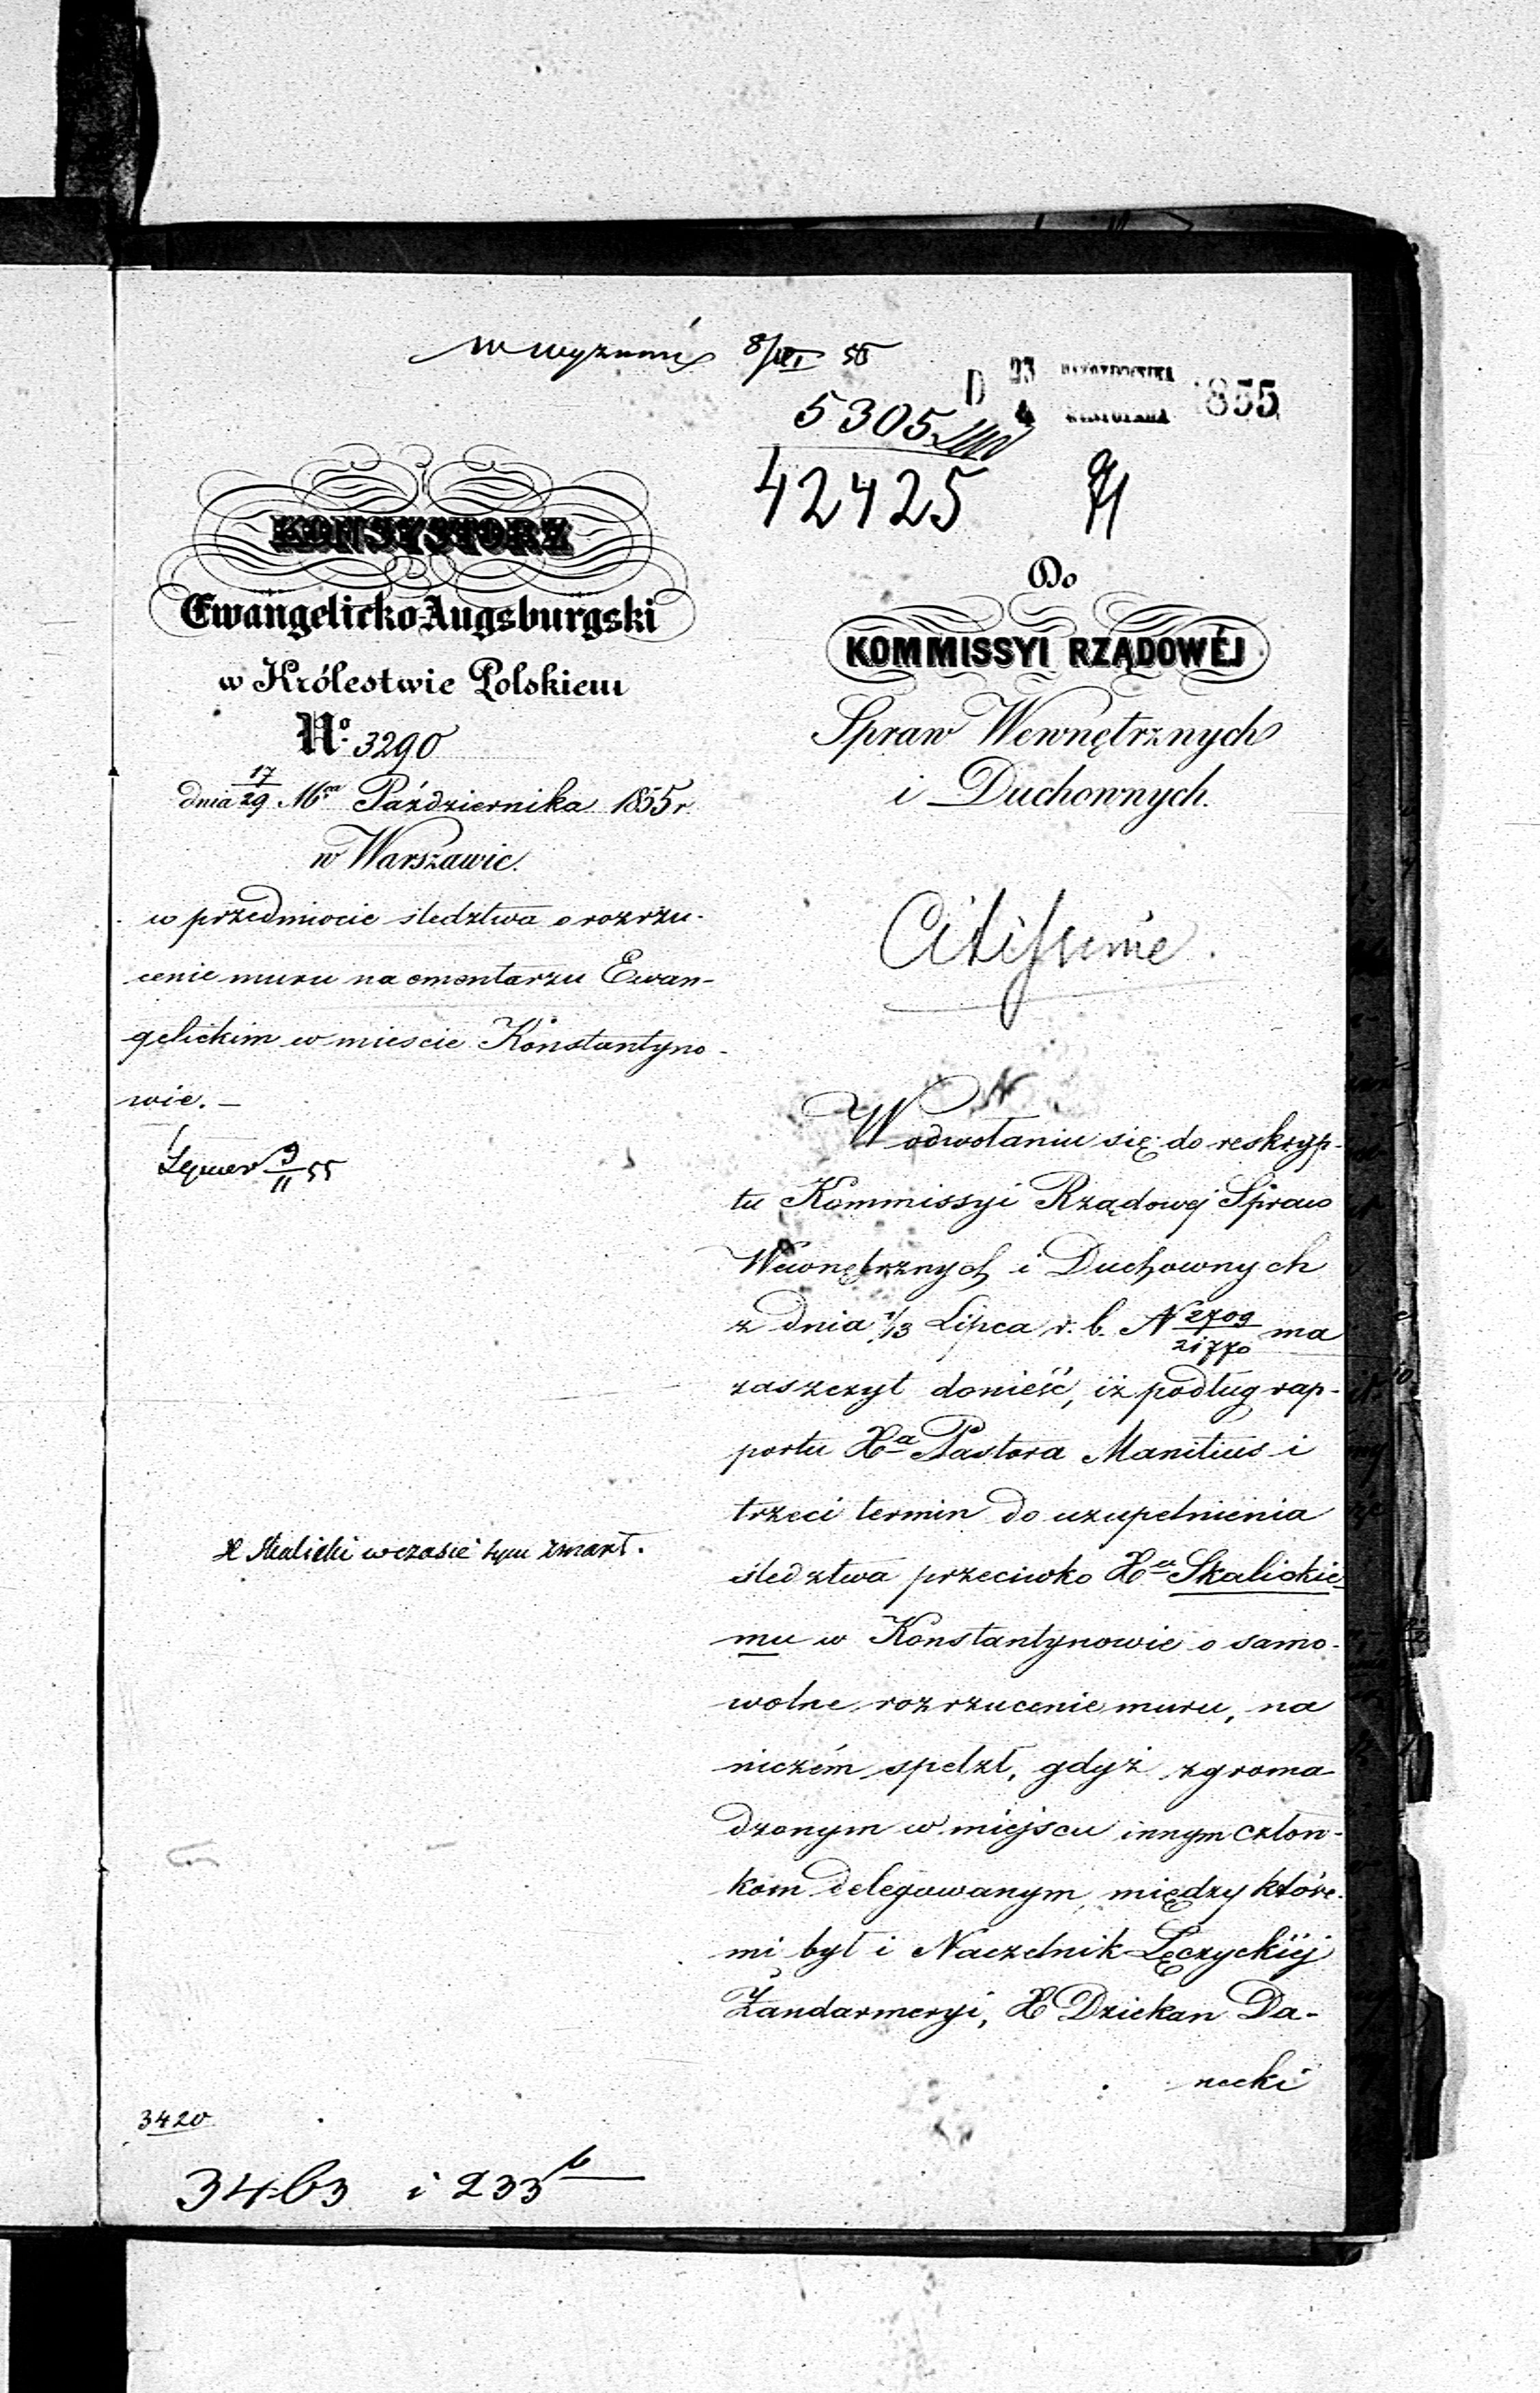 w wyznani 8/XI 55
D 23 PAZDZIERNIKA 1855
4 LISTOPADA
5305
42425
KONSYSTORZ
Ewangelicko-Augsburgski
w Królestwie Polskiem
No. 3290
dnia 17/29 Mca Października 1855 r.
w Warszawie.
w przedmiocie śledztwa o rozrzu-
cenie muru na cmentarzu Ewan-
gelickim w mieście Konstantyno-
wie. —
9/11 55
X Skalicki w czasie tym zmarł.
3420
3463 i 233 b
Do
KOMMISSYI RZĄDOWÉJ
Spraw Wewnętrznych
i Duchownych.
Citissime.
W odwołaniu się do reskryp-
tu Kommissyi Rządowej Spraw
Wewnętrznych i Duchownych
z dnia 1/13 Lipca r. b. N 2709/21770 ma
zaszczyt donieść, iż podług rap-
portu Xa Pastora Manitius i
trzeci termin do uzupełnienia
śledztwa przeciwko Xu Skalickie-
mu w Konstantynowie o samo-
wolne rozrzucenie muru, na
niczém spełzł, gdyż zgroma-
dzonym w miejscu innym człon-
kom delegowanym, między które-
mi był i Naczelnik Łęczyckiéj
Żandarmeryi, X Dziekan Da-
necki